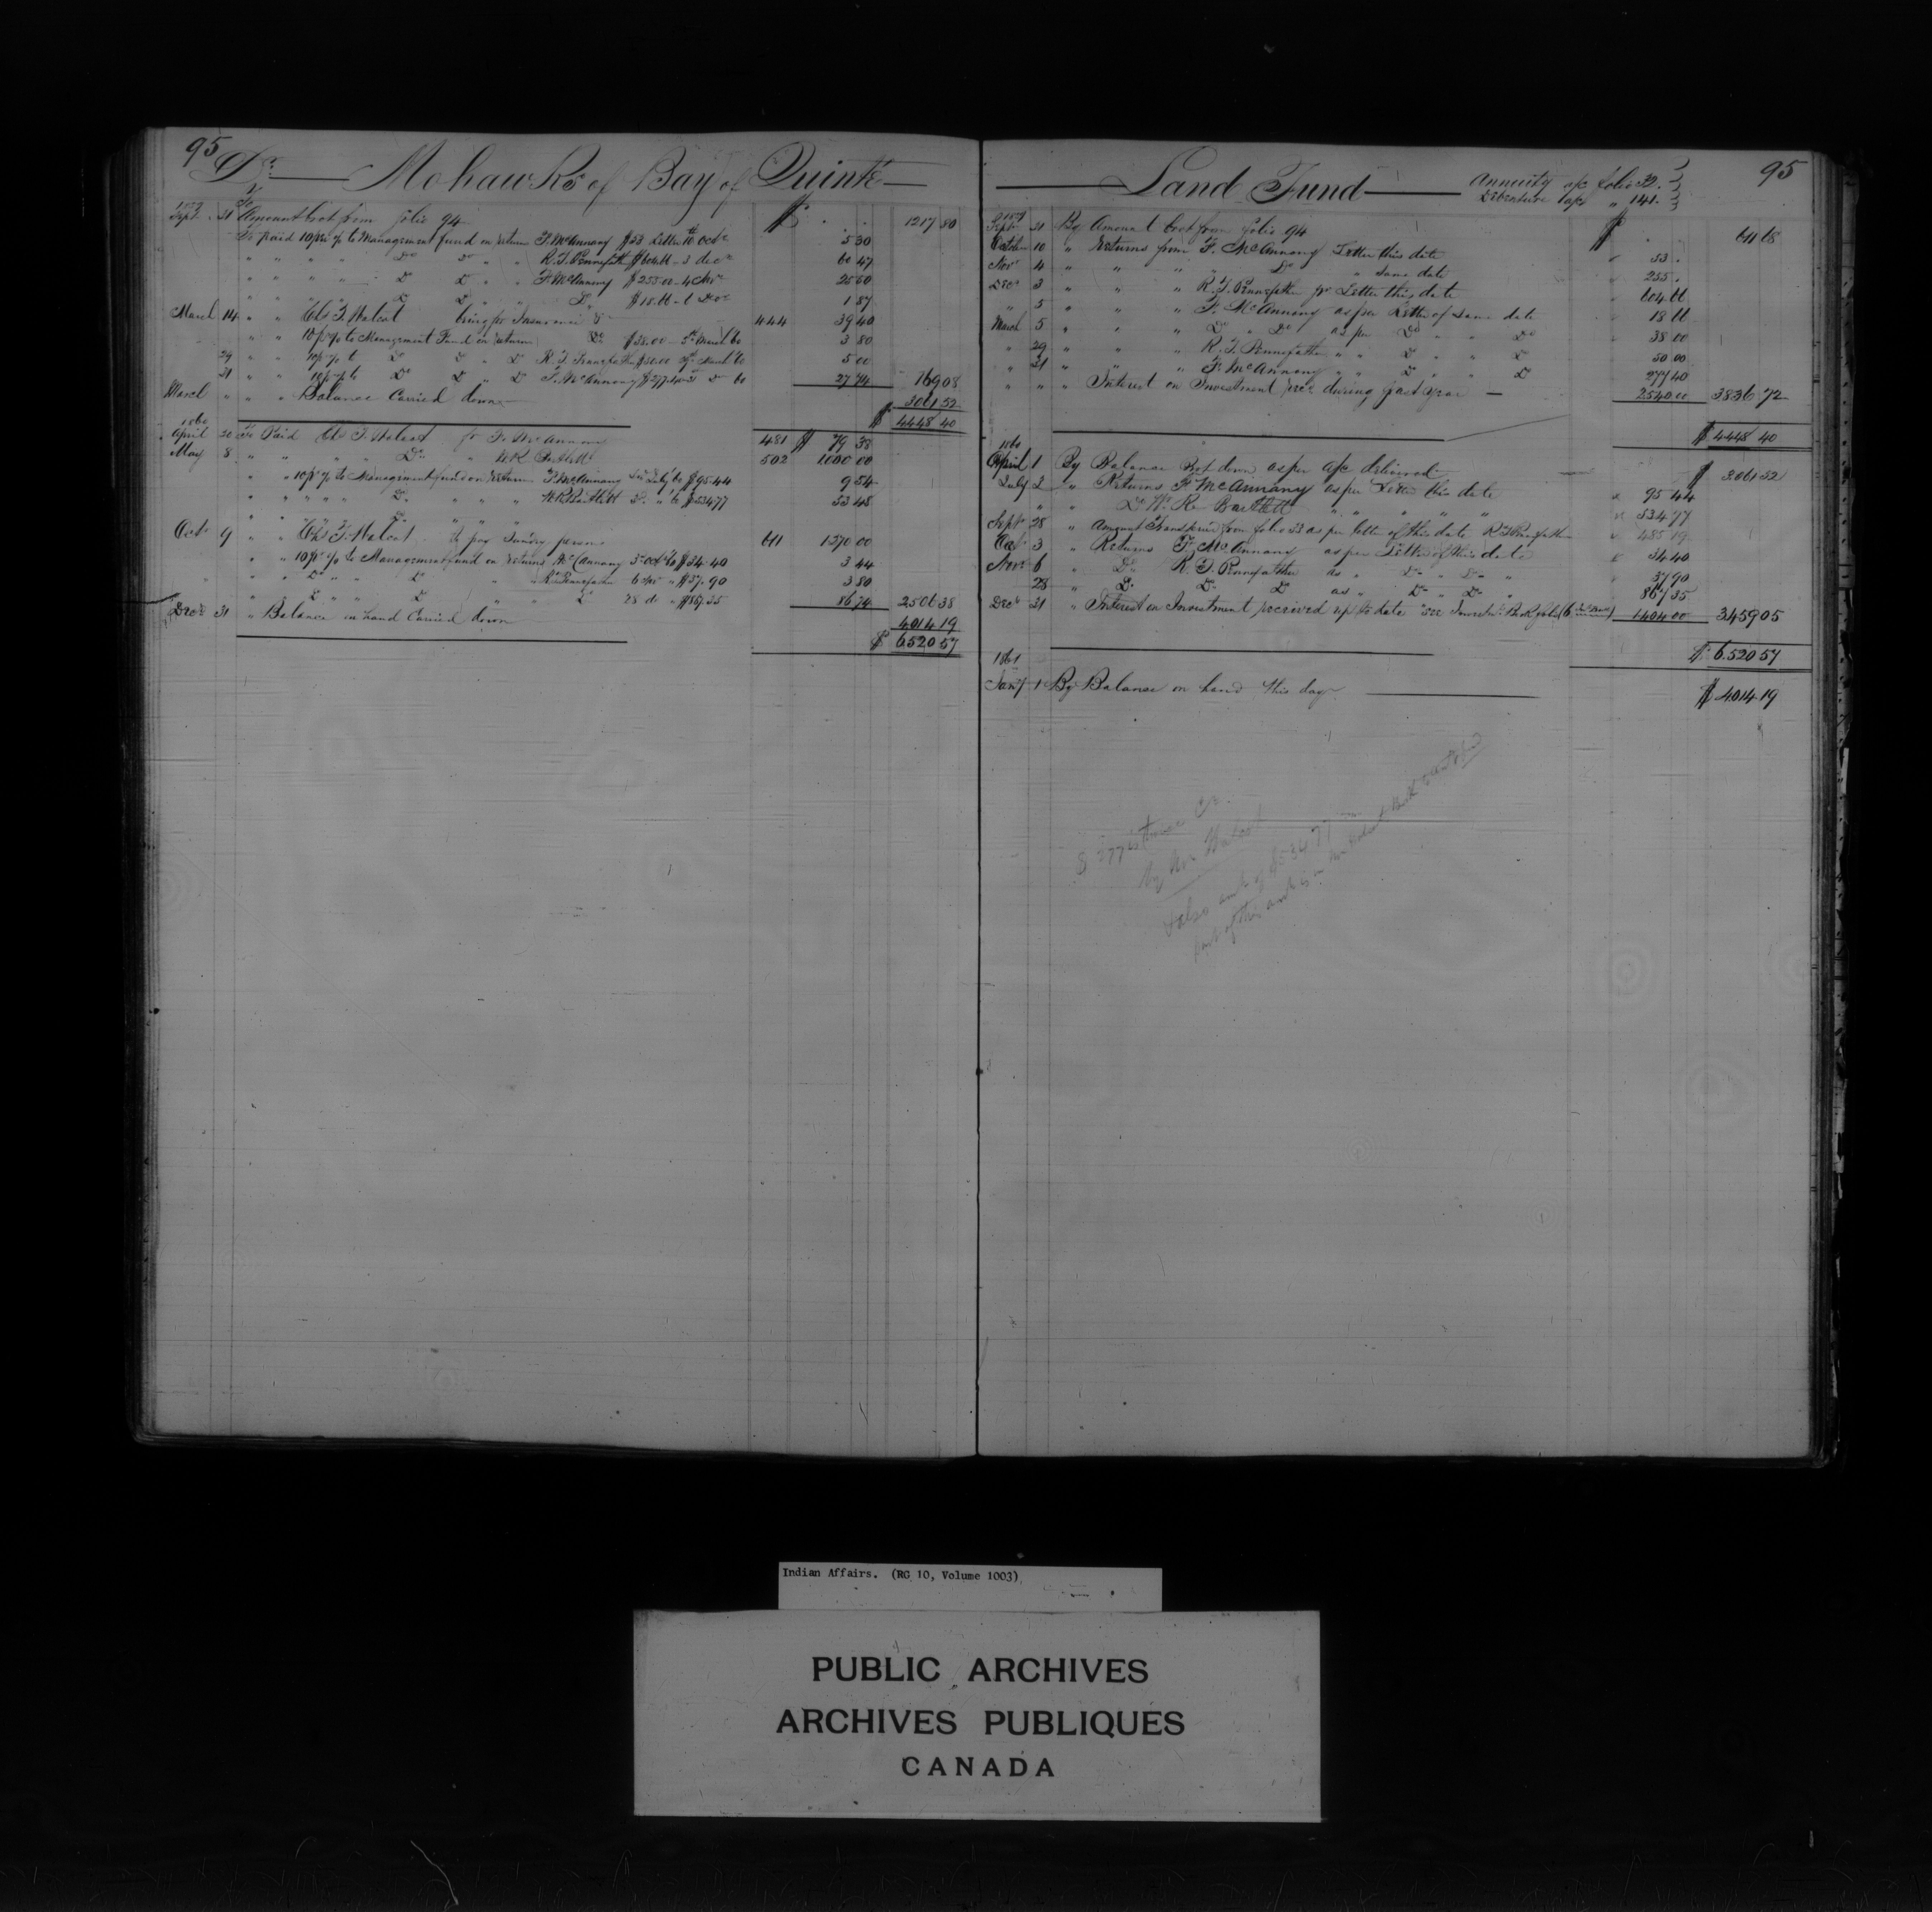 95
Dr. Mohawks of Bay of Quinté
1859
Sept. 31 To Amount brot from folio 94 $ . . 1217 80
To paid 10 per % to Management fund on return F. McAnnany $53 Letter 10th Octr 5 30
" " " " Do Do " " R. T. Pennefather $604.66 - 3 decr 60 47
" " " " Do Do " " F. McAnnany $255.00 - 4 Novr 25 50
" " " " Do Do " " Do $18.66 - 6 Decr 1 87
March 14 " " Chs T. Walcot being for Insurance &c 444 39 40
" " 10 pr % to Management Fund on return Do $38.00 - 5th March /60 3 80
29 " " 10 pr % to Do Do " Do R. T. Pennefather $50.00 29th March /60 5 00
31 " " 10 pr % to Do Do " Do F. McAnnany $277.40 31 Do 60 27 74 169 08
March " " " Balance Carried down 3061 52
$ 4448 40
1860
April 20 To Paid Chs T. Walcot for F. McAnnany 481 $ 79 38
May 8 " " " " Do " W. R. Bartlett 502 1000 00
" " 10 pr % to Management fund on return F. McAnnany 3rd July 60 $95.44 9 54
" " " " " Do " " " W. R. Bartlett Do " 60 $534.77 53 48
Octr 9 " " Chs T. Walcot to pay Sundry persons 611 1270 00
" " 10 pr % to Management fund on returns McAnnany 3 Oct 60 $34.40 3 44
" " Do " " Do " R. Pennefather 6 Nov " $37.90 3 80
" " Do " " Do " " Do 28 do " $867.35 86 74 2506 38
Decr 31 " Balance in hand Carried down 4014 19
$ 6520 57
Land Fund
Annuity a/c folio 32.
Debenture a/c " 141.
95
1859
Sept 31 By Amount brot from folio 94 $ . 611 68
October 10 " Returns from F. McAnnany Letter this date 53 .
Novr 4 " " " Do " same date 255 .
Decr 3 " " " R. T. Pennefather pr Letter this date 604 66
" 5 " " " F. McAnnany as per Letter of same date 18 66
March 5 " " " Do " Do as per Do " " Do 38 00
" 29 " " " R. T. Pennefather " " Do " " Do 50 00
" 31 " " " F. McAnnany " " Do " " Do 277 40
" " " Interest on Investment recd during past year 2540 00 3836 72
$ 4448 40
1860
April 1 By Balance Brot down as per a/c delivered $ 3061 52
July 2 " Returns F. McAnnany as per Letter this date 95 44
" " Do W. R. Bartlett " " " " " 534 77
Septr 28 " Amount Transferred from folio 33 as per letter of this date R. T. Pennefather 485 19
Octr 3 " Returns F. McAnnany as per Letter of this date 34 40
Novr 6 " Do R. T. Pennefather as " Do " Do " 37 90
28 " Do Do Do as " Do " Do " 867 35
Decr 31 " Interest on Investment received up to date see Investmt Book folio (6 ) 1404 00 3459 05
$ 6520 57
1861
Jany 1 By Balance on hand this day $ 4014 19
by Mr Walcot
also amt of $534 77
part of this amt is in
Indian Affairs. (RG 10, Volume 1003)
PUBLIC ARCHIVES
ARCHIVES PUBLIQUES
CANADA